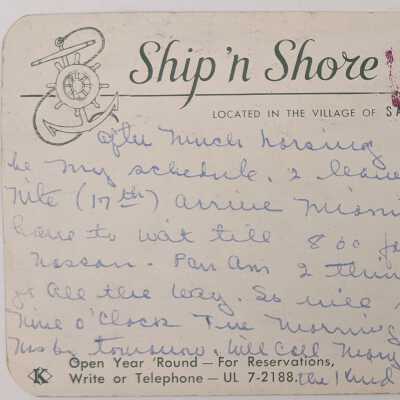 Ship 'n Shore
LOCATED IN THE VILLAGE OF SA
After much horsing
be my schedule. I leave
Nite (17th) arrive Miami
have to wait till 8 00 fo
Nassau. Pan Am I think
go all the way. So will
Nine O'Clock Tue morning
tomorrow. Will call Mary
Open Year 'Round — For Reservations,
Write or Telephone — UL 7-2188.
the
K